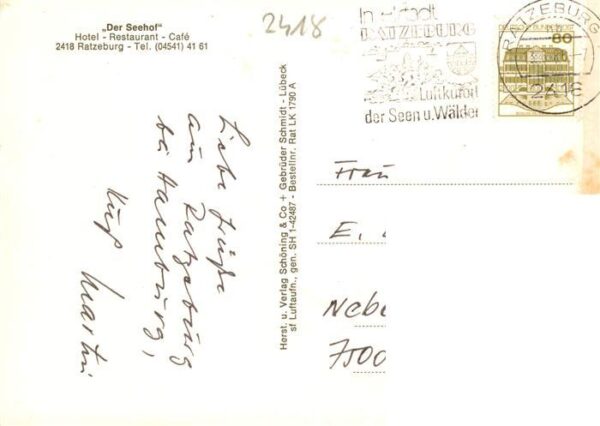 „Der Seehof“
Hotel - Restaurant - Café
2418 Ratzeburg - Tel. (04541) 41 61
2418
Inselstadt
RATZEBURG
Luftkurort
der Seen u. Wälder
RATZEBURG
2418
80
Liebe Grüße
aus Ratzeburg
bei Hamburg,
Kuß
Martin
Herst. u. Verlag Schöning & Co + Gebrüder Schmidt - Lübeck
sf Luftaufn., gen. SH 1-42487 - Bestellnr. Rat LK 1790 A
Frau
E.
Nebe
7500